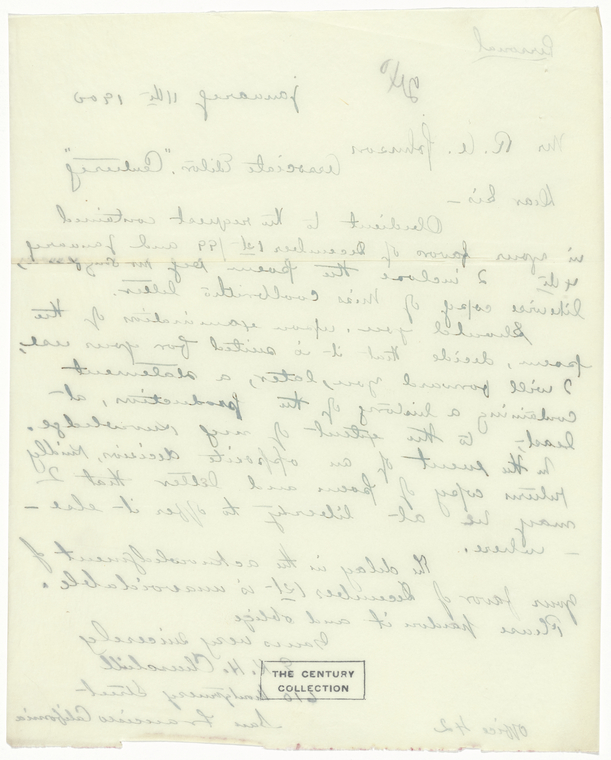 Personal
January 11th 1900
Mr R. U. Johnson
Associate Editor "Century"
Dear Sir —
Obedient to the request contained
in your favor of December 1st 199 and January
4th I inclose the poem by Mr
likewise copy of Miss Coolbrith's letter.
Should you, upon examination of the
poem, decide that it is suited for your use,
I will forward you, later, a statement
containing a history of the production, at
least, to the extent of my knowledge.
In the event of an opposite decision kindly
return copy of poem and letter that I
may be at liberty to offer it else —
— where.
The delay in the acknowledgment of
your favor of December 1st is unavoidable.
Please pardon it and oblige
Yours very sincerely
H. Churchill
THE CENTURY
COLLECTION
Montgomery Street
San Francisco California
Office 42